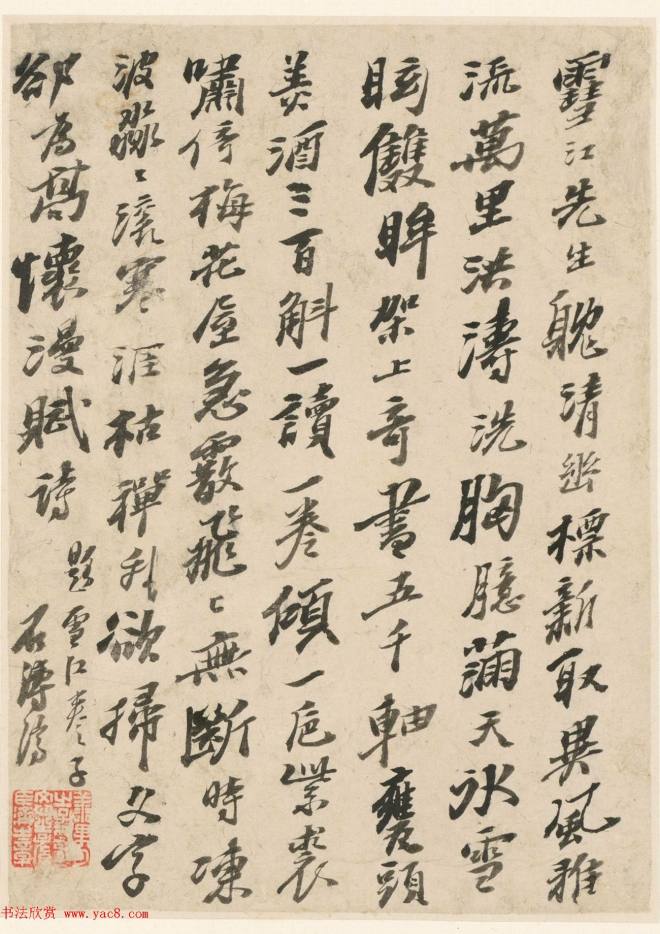 雪江先生貌清幽標新取異風雅
流萬里洪濤洗胸臆滿天冰雪
眩雙眸架上奇書五千軸甕頭
美酒三百斛一讀一卷傾一卮紫裘
嘯倚梅花屋急霰飛〻無斷時凍
波淼〻滾寒涯枯禪我欲掃文字
卻為高懷漫賦詩
題雪江卷子
石濤濟
书法欣赏 www.yac8.com